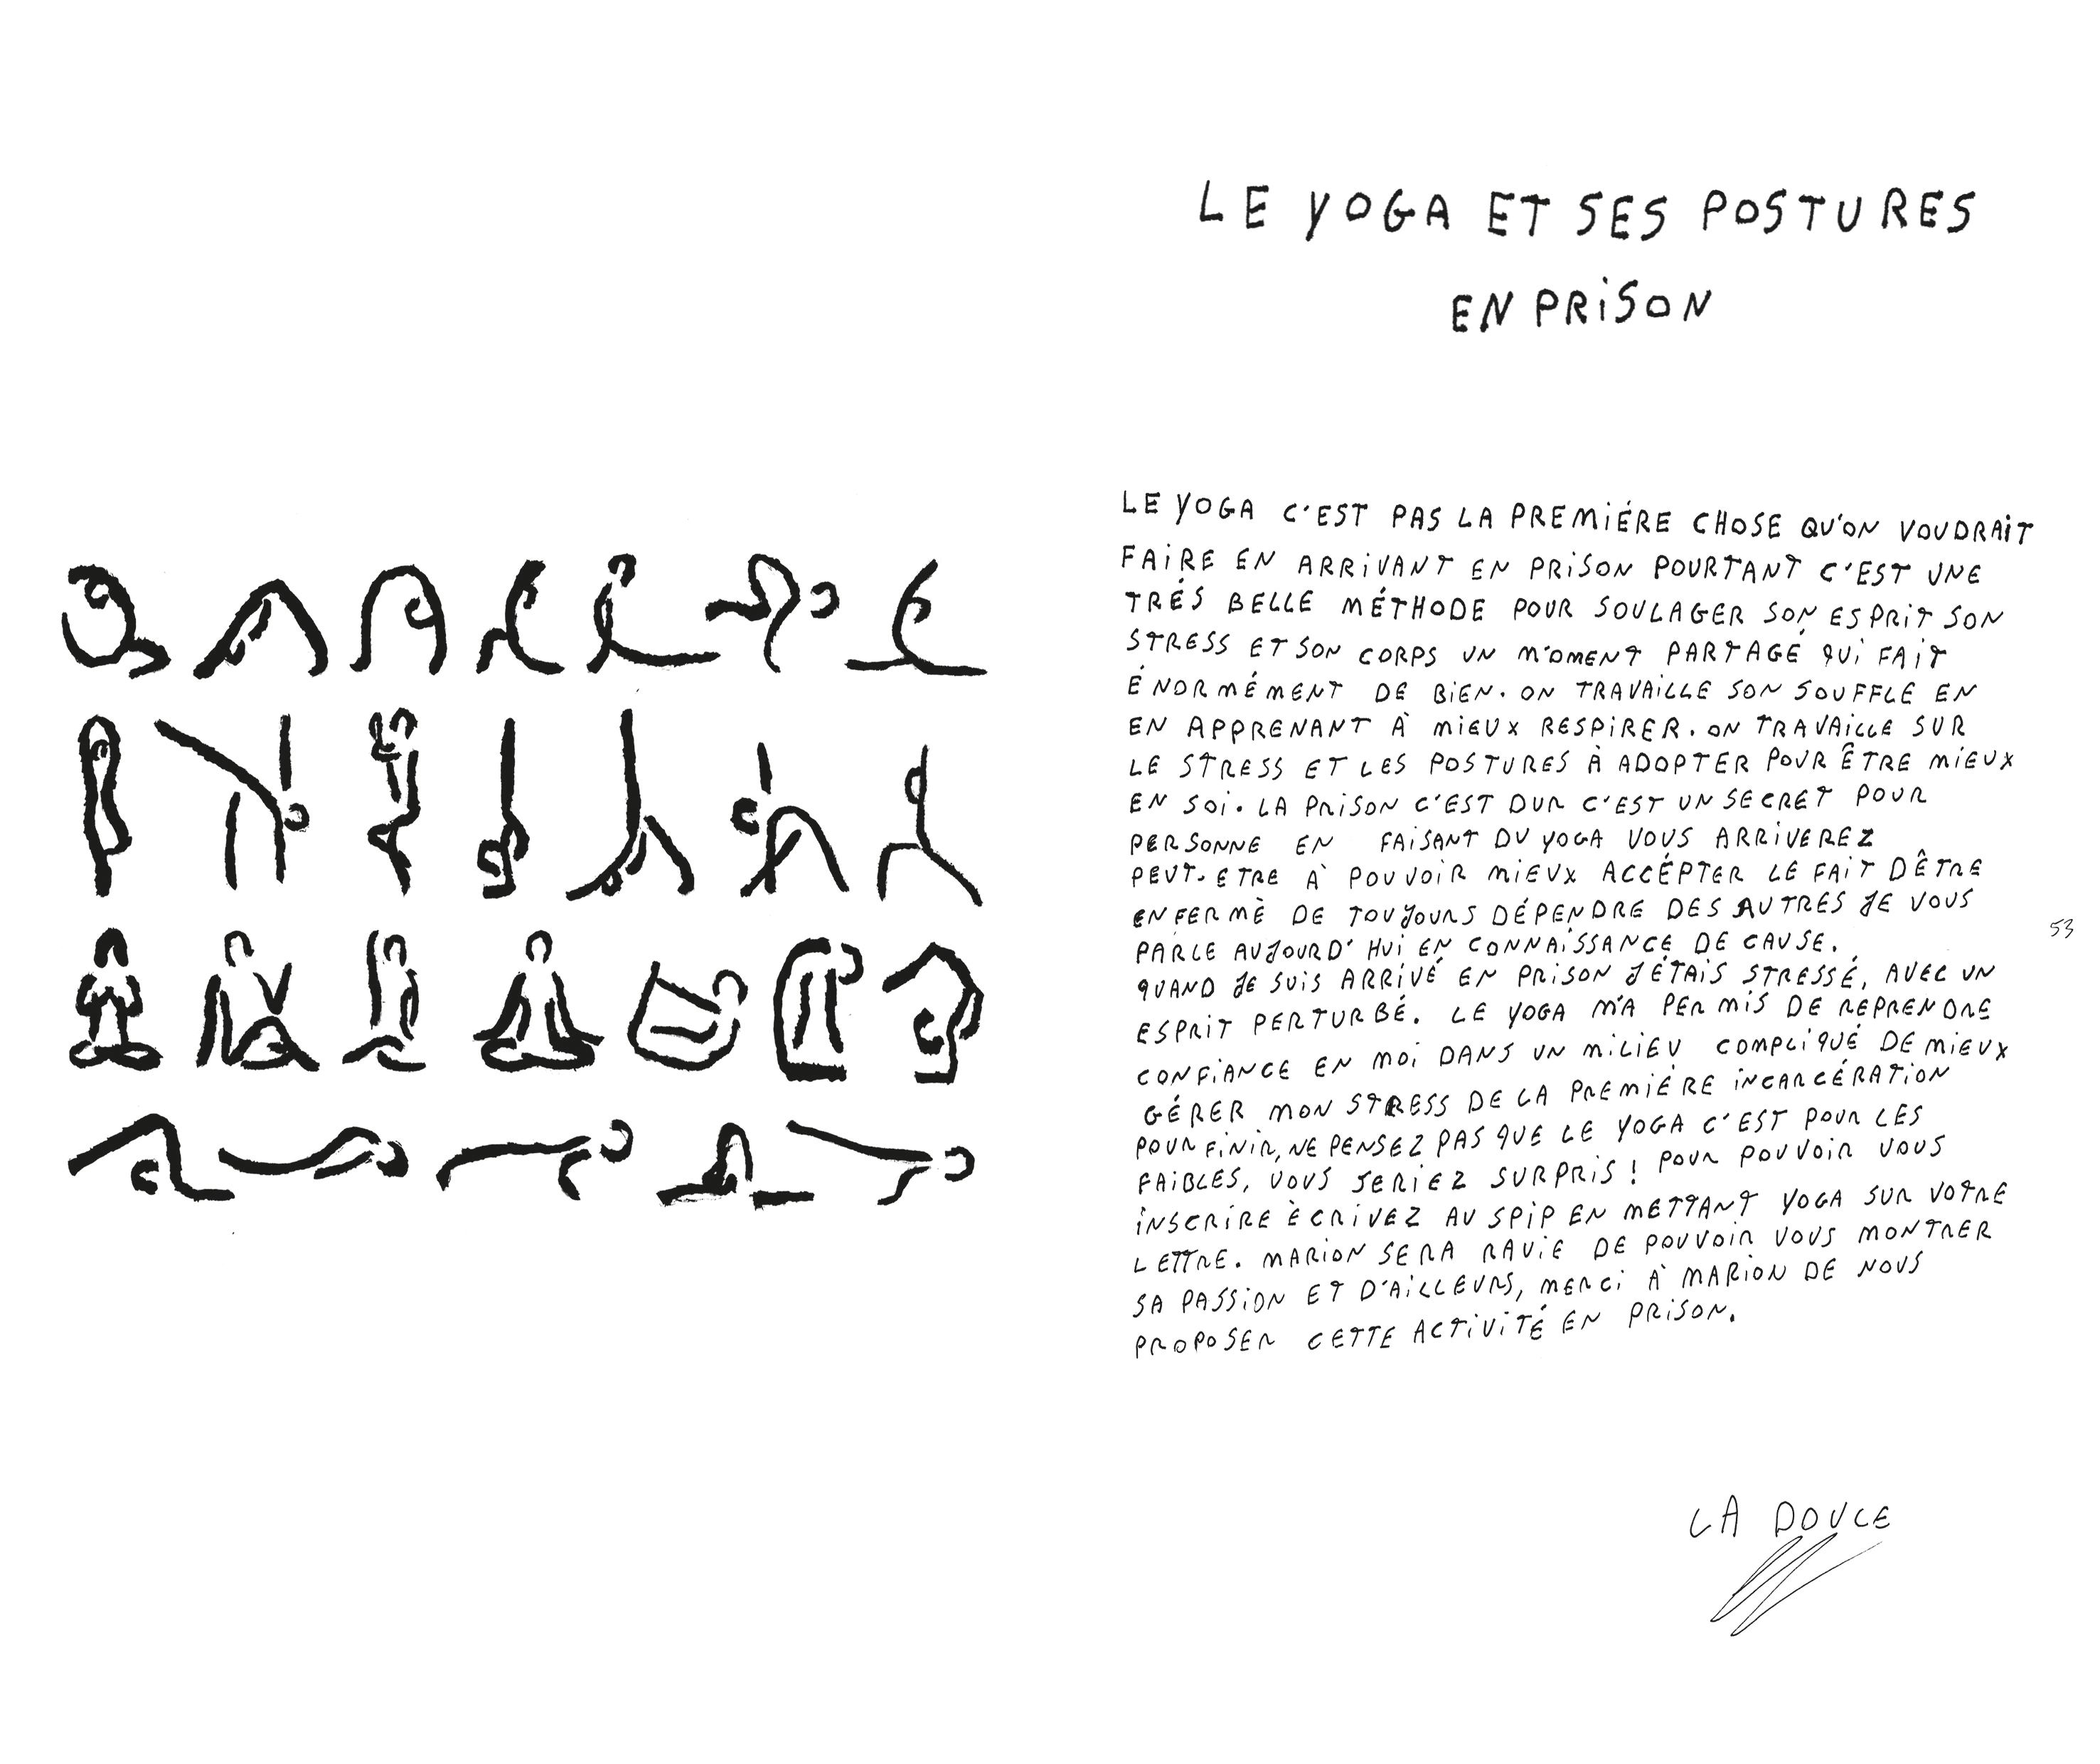 LE YOGA ET SES POSTURES
EN PRISON
LE YOGA C'EST PAS LA PREMIÉRE CHOSE QU'ON VOUDRAIT
FAIRE EN ARRIVANT EN PRISON POURTANT C'EST UNE
TRÉS BELLE MÉTHODE POUR SOULAGER SON ESPRIT SON
STRESS ET SON CORPS UN M'OMENT PARTAGÉ QUI FAIT
ÉNORMÉMENT DE BIEN. ON TRAVAILLE SON SOUFFLE EN
EN APPRENANT À MIEUX RESPIRER. ON TRAVAILLE SUR
LE STRESS ET LES POSTURES À ADOPTER POUR ÊTRE MIEUX
EN SOI. LA PRISON C'EST DUR C'EST UN SECRET POUR
PERSONNE EN FAISANT DU YOGA VOUS ARRIVEREZ
PEUT-ETRE À POUVOIR MIEUX ACCÉPTER LE FAIT DÊTRE
ENFERMÈ DE TOUJOURS DÉPENDRE DES AUTRES JE VOUS
PARLE AUJOURD'HUI EN CONNAISSANCE DE CAUSE.
QUAND JE SUIS ARRIVÉ EN PRISON J'ÉTAIS STRESSÉ, AVEC UN
ESPRIT PERTURBÉ. LE YOGA M'A PERMIS DE REPRENDRE
CONFIANCE EN MOI DANS UN MILIEU COMPLIQUÉ DE MIEUX
GÉRER MON STRESS DE LA PREMIÉRE INCARCÉRATION
POUR FINIR, NE PENSEZ PAS QUE LE YOGA C'EST POUR LES
FAIBLES, VOUS SERIEZ SURPRIS ! POUR POUVOIR VOUS
INSCRIRE ÈCRIVEZ AU SPIP EN METTANT YOGA SUR VOTRE
LETTRE. MARION SERA RAVIE DE POUVOIR VOUS MONTRER
SA PASSION ET D'AILLEURS, MERCI À MARION DE NOUS
PROPOSER CETTE ACTIVITÉ EN PRISON.
53
LA DOUCE